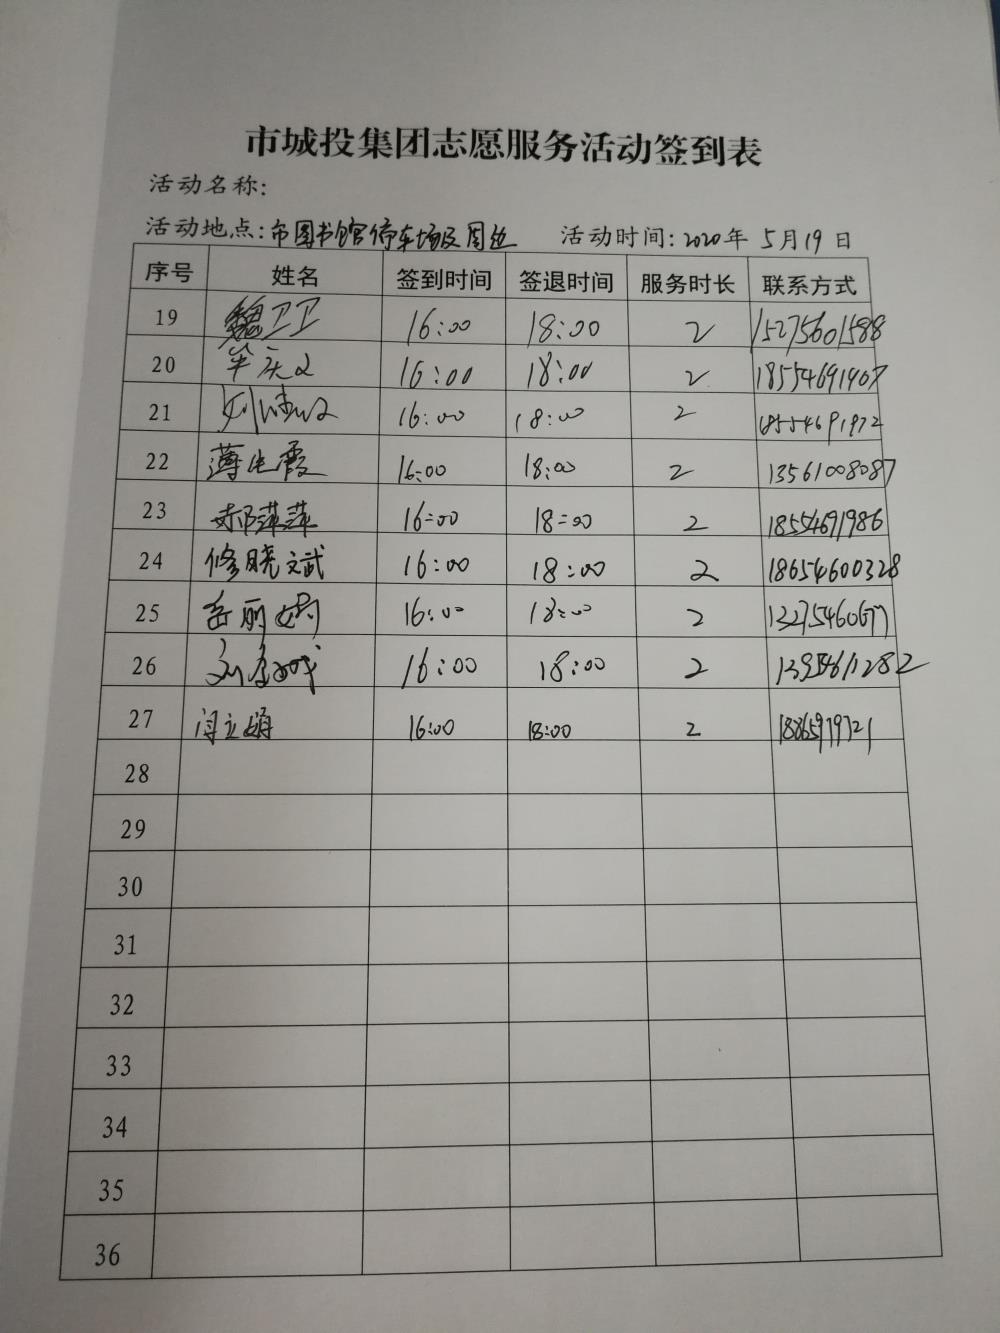 市城投集团志愿服务活动签到表
活动名称:
活动地点:市图书馆停车场及周边 活动时间:2020年5月19日
序号 姓名 签到时间 签退时间 服务时长 联系方式
19 魏卫卫 16:00 18:00 2 15275601588
20 16:00 18:00 2 18554691907
21 16:00 18:00 2 18554691972
22 16:00 18:00 2 13561008087
23 郝萍萍 16:00 18:00 2 18554691986
24 修晓斌 16:00 18:00 2 18654600328
25 岳丽娟 16:00 18:00 2
26 16:00 18:00 2
27 闫立娟 16:00 18:00 2
28
29
30
31
32
33
34
35
36